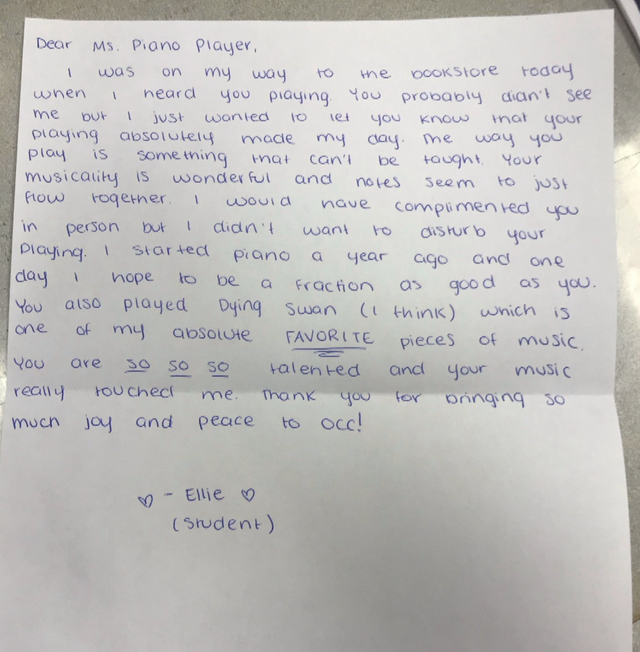 Dear Ms. Piano Player,
I was on my way to the bookstore today
when I heard you playing. You probably didn't see
me but I just wanted to let you know that your
playing absolutely made my day. The way you
play is something that can't be taught. Your
musicality is wonderful and notes seem to just
flow together. I would have complimented you
in person but I didn't want to disturb your
playing. I started piano a year ago and one
day I hope to be a fraction as good as you.
You also played Dying Swan (I think) which is
one of my absolute FAVORITE pieces of music.
You are so so so talented and your music
really touched me. Thank you for bringing so
much joy and peace to OCC!
♡ - Ellie ♡
(Student)